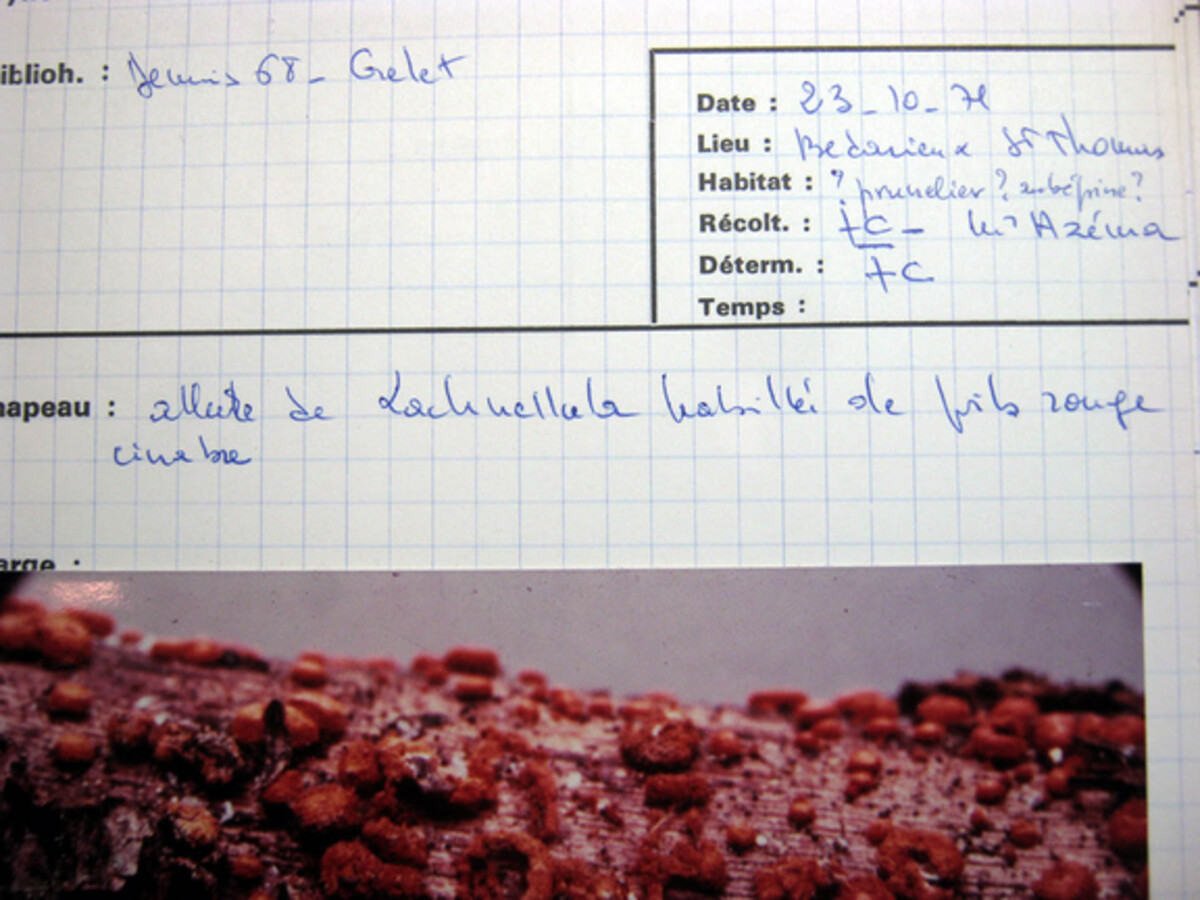 iblioh. : Dennis 68 - Grelet
Date : 23-10-71
Lieu : Bedarieux St Thomas
Habitat : ? prunelier ? aubépine ?
Récolt. : FC - Mr Azéma
Déterm. : FC
Temps :
hapeau : allure de Lachnellula habillé de poils rouge
cinabre
arge :